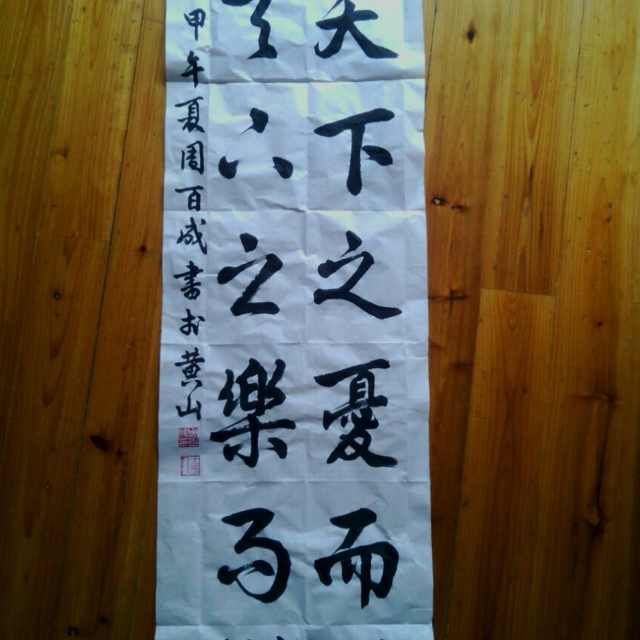 天下之憂而
天下之樂而
甲午夏周百成書於黄山